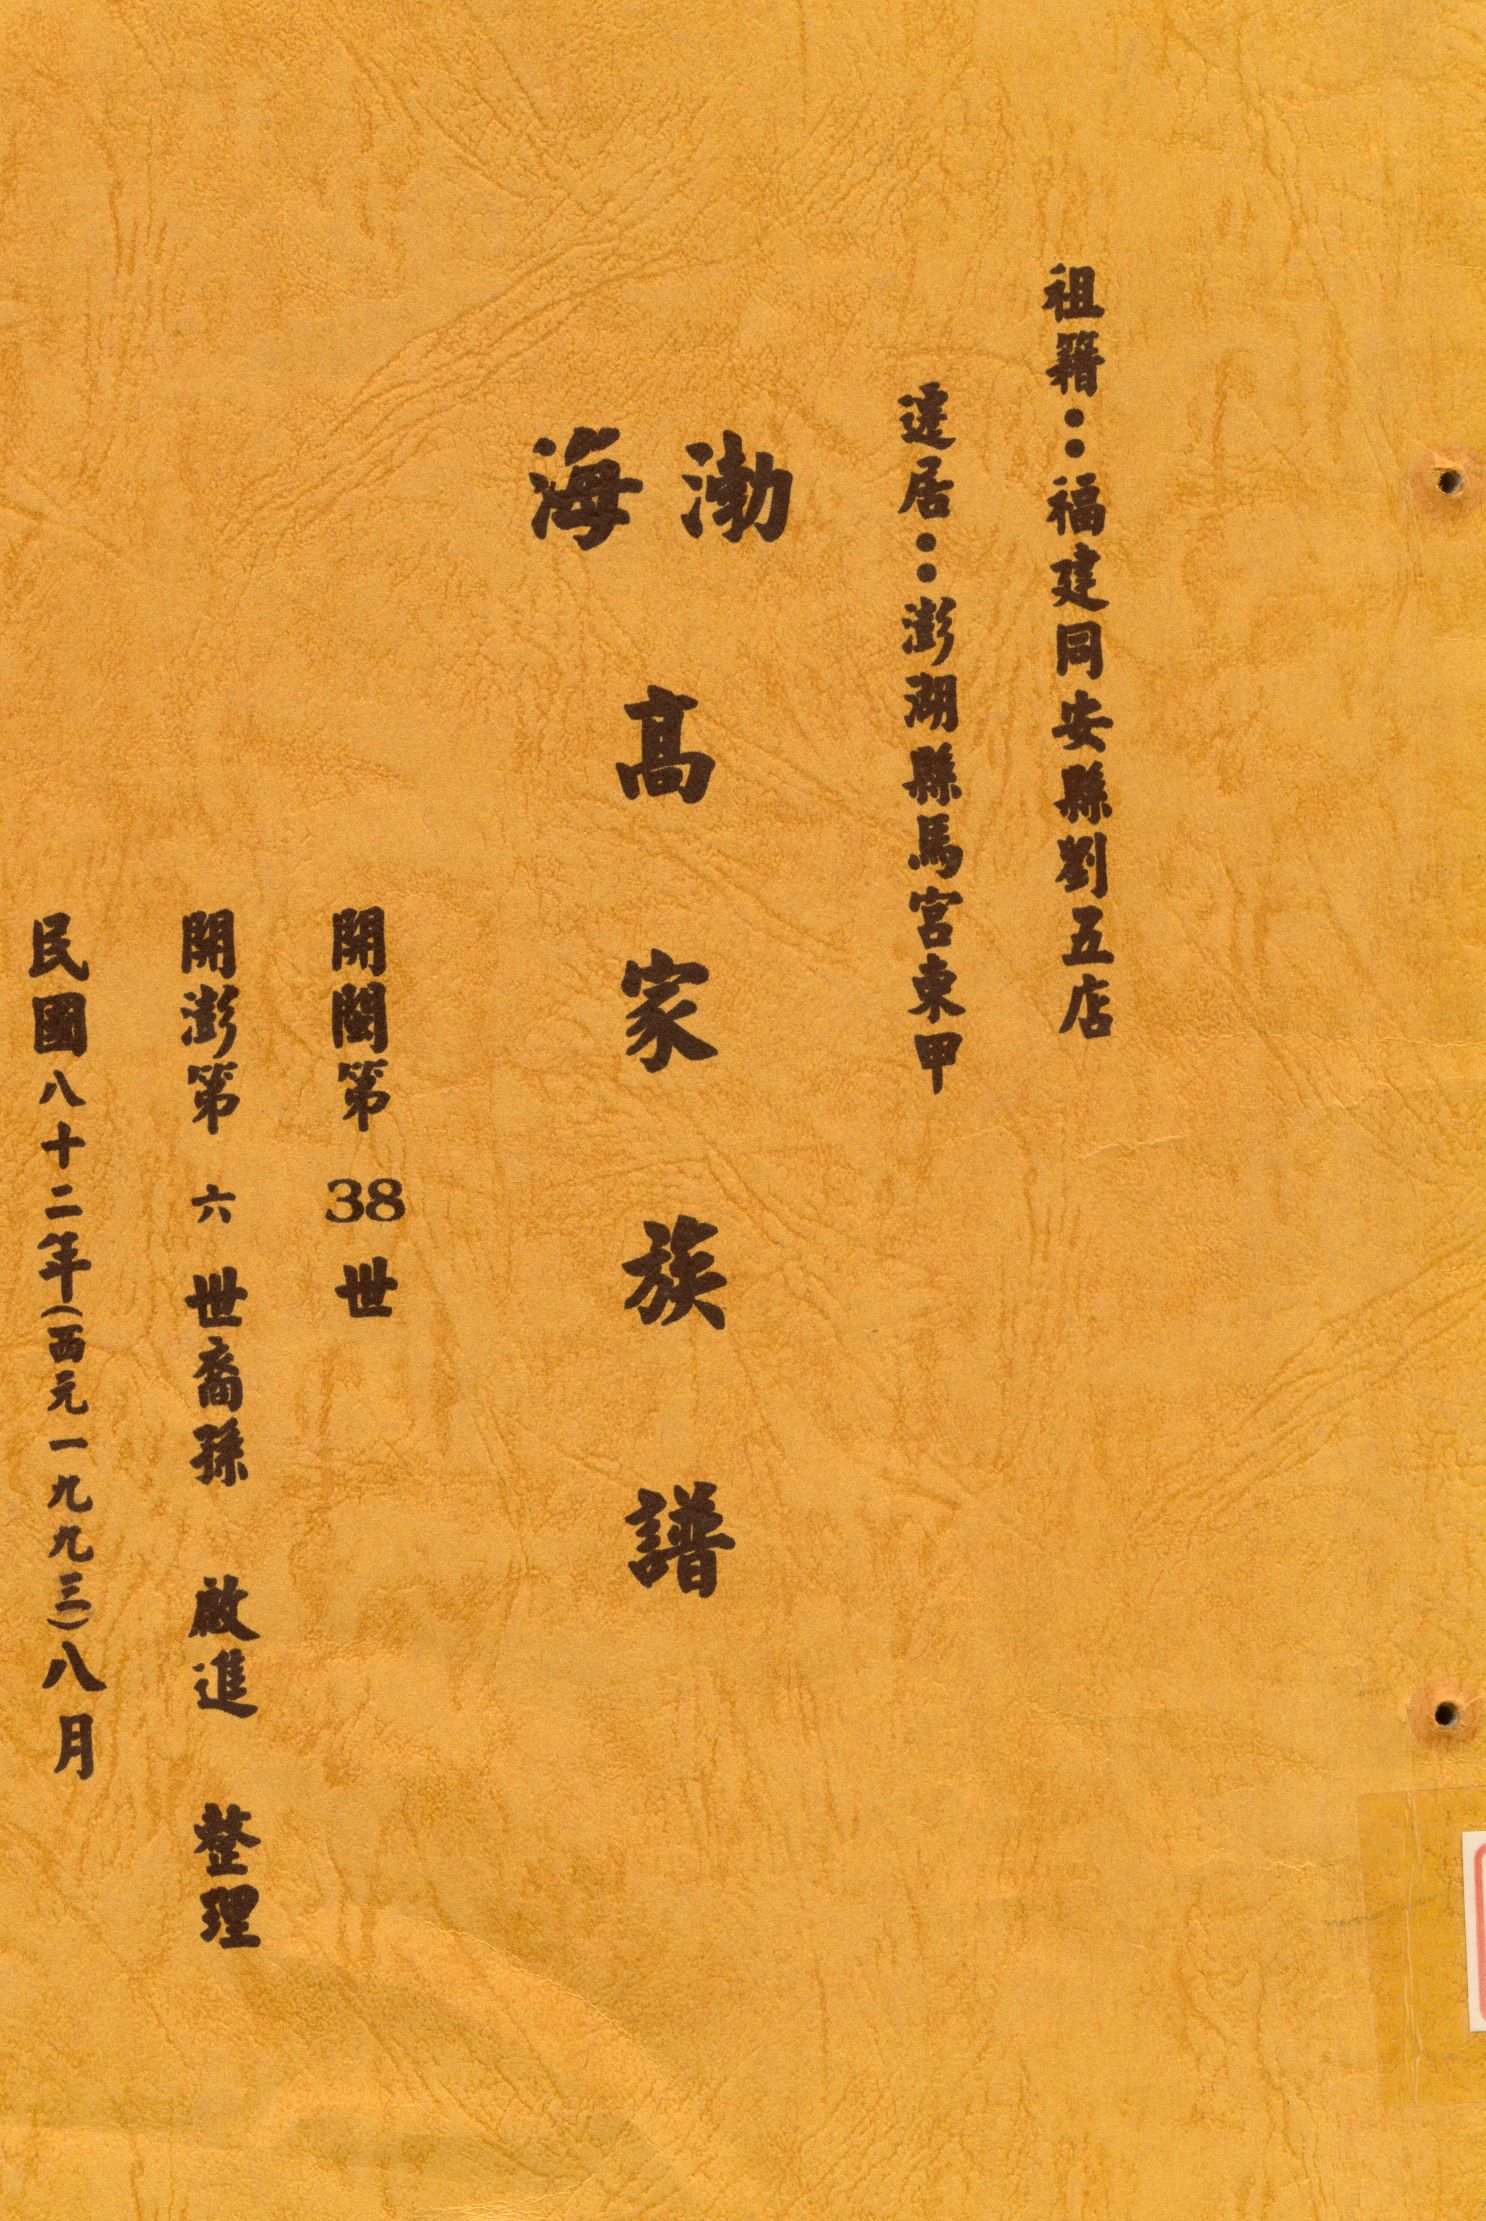 祖籍：福建同安縣劉五店
遷居：澎湖縣馬宮東甲
渤海
高家族譜
開閩第38世
開澎第六世裔孫 啟進 整理
民國八十二年(西元一九九三)八月